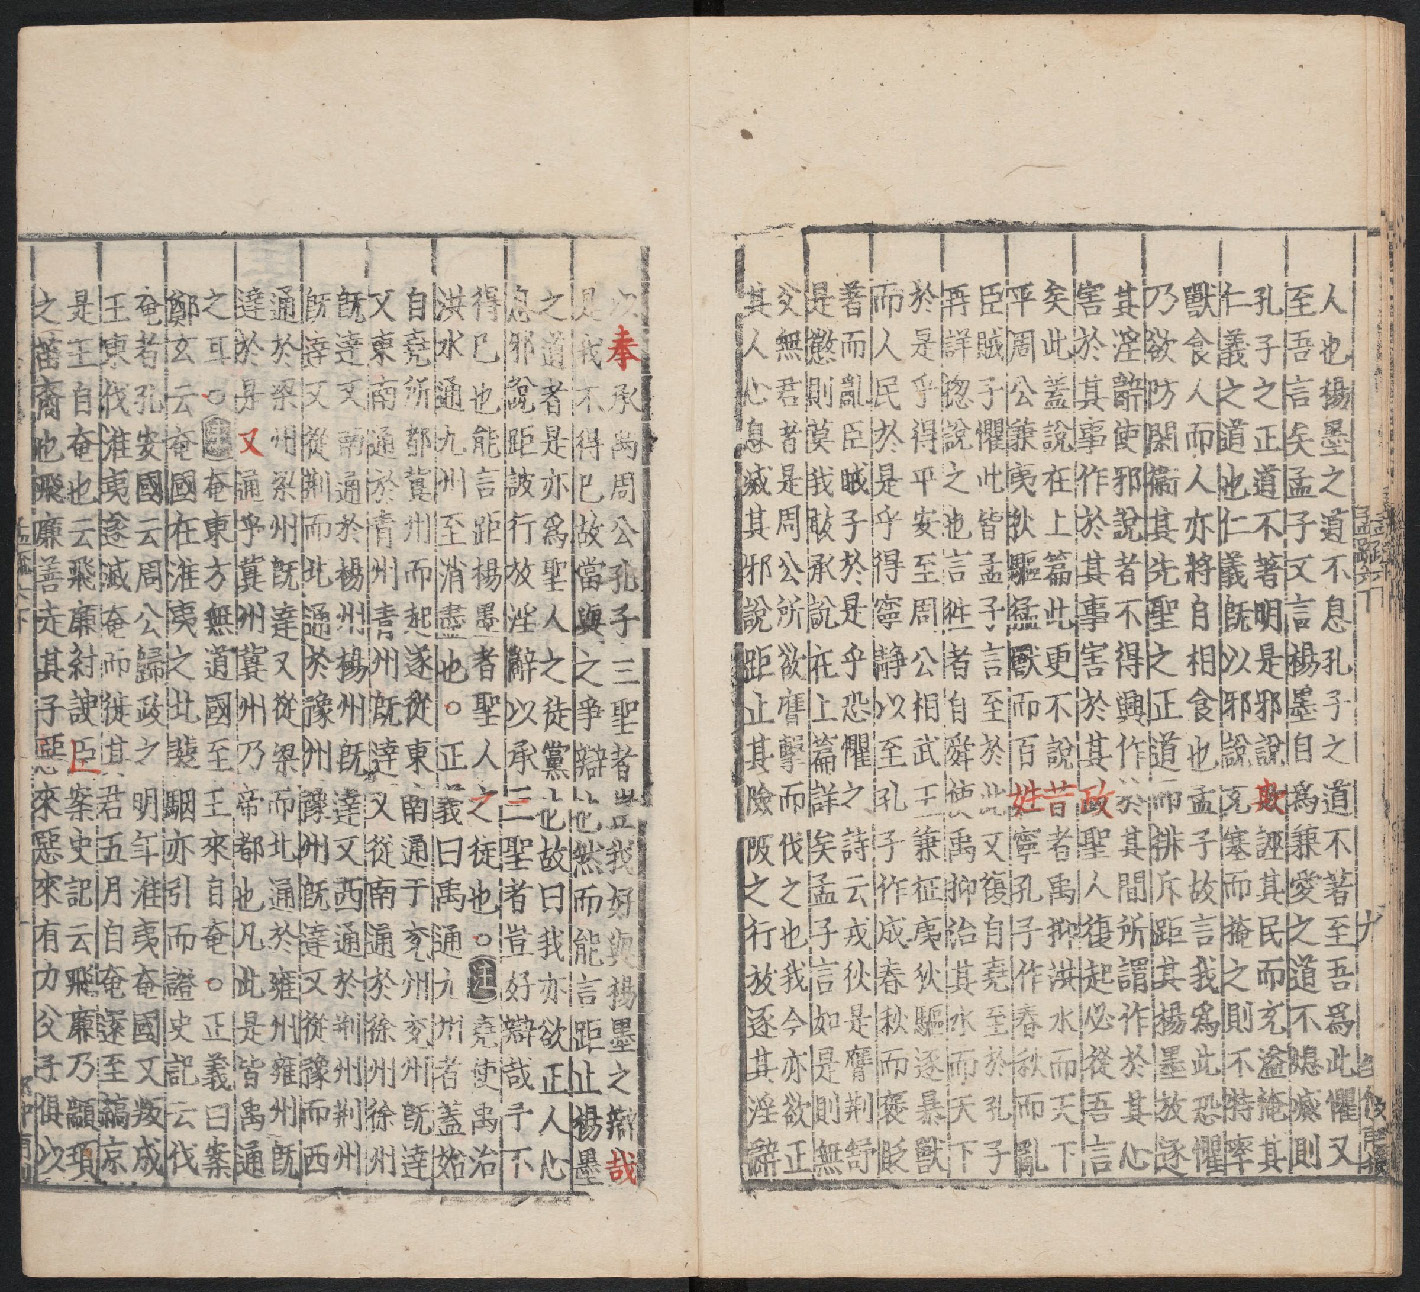 人也楊墨之道不息孔子之道不著至吾爲此懼又
至吾言矣孟子又言楊墨自爲兼愛之道不熄滅則
孔子之正道不著明是邪說欺誣其民而充溢掩其
仁義之道也仁義旣以邪說充塞而掩之則不特率
獸食人而人亦將自相食也孟子故言我爲此恐懼
乃欲防閑衛其先聖之正道而排斥距其楊墨放逐
其淫辭使邪說者不得興作於其間所謂作於其心
害於其事作於其事害於其政聖人復起必從吾言
矣此蓋說在上篇此更不說昔者禹抑洪水而天下
平周公兼夷狄驅猛獸而百姓寧孔子作春秋而亂
臣賊子懼此皆孟子言至於此又復自堯至於孔子
再詳揔說之也言昔者自舜使禹抑治其水而天下
於是乎得平安至周公相武王兼征夷狄驅逐暴獸
而人民於是乎得寧靜以至孔子作成春秋而褒貶
著而亂臣賊子於是乎恐懼之詩云戎狄是膺荆舒
是懲則莫我敢承說在上篇詳矣孟子言如是則無
父無君者是周公所欲膺擊而伐之也我今亦欲正
其人心息滅其邪說距止其險陂之行放逐其淫辭
奉承禹周公孔子三聖者豈我好與楊墨之辯哉
是我不得已故當與之爭辯也然而能言距止楊墨
之道者是亦爲聖人之徒黨也故曰我亦欲正人心
息邪說距詖行放淫辭以承三聖者豈好辯哉予不
得已也能言距楊墨者聖人之徒也○注堯使禹治
洪水通九州至消盡也○正義曰禹通九州者蓋始
自堯所都冀州而起遂從東南通于兗州兗州旣達
又東南通於青州青州旣達又從南通於徐州徐州
旣達又南通於楊州楊州旣達又西通於荆州荆州
旣達又從荆而北通於豫州豫州旣達又從豫而西
通於梁州梁州旣達又從梁而北通於雍州雍州旣
達於是又通乎冀州冀州乃帝都也凡此是皆禹通
之耳○注奄東方無道國至王來自奄○正義曰案
鄭玄云奄國在淮夷之北裴駰亦引而證史記云伐
奄者孔安國云周公歸政之明年淮夷奄國又叛成
王東伐淮夷遂滅奄而徙其君五月自奄還至鎬京
是王自奄也云飛廉紂諛臣案史記云飛廉乃顓頊
之苗裔也飛廉善走其子惡來惡來有力父子俱以